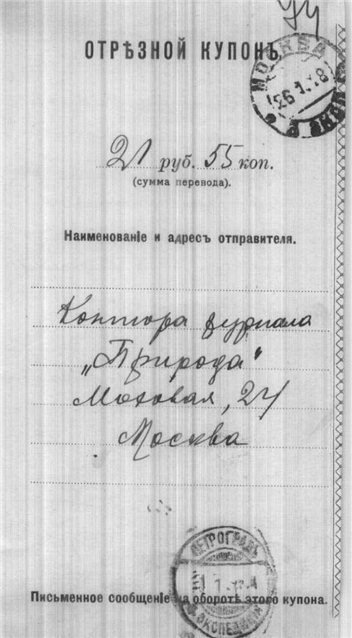 ОТРѢЗНОЙ КУПОНЪ
МОСКВА
26 1 18
21 руб. 55 коп.
(сумма перевода).
Наименованіе и адресъ отправителя.
Контора журнала
„Природа"
Моховая, 24
Москва
ПЕТРОГРАДЪ
ЭКСПЕДИЦІЯ
Письменное сообщеніе на оборотѣ этого купона.